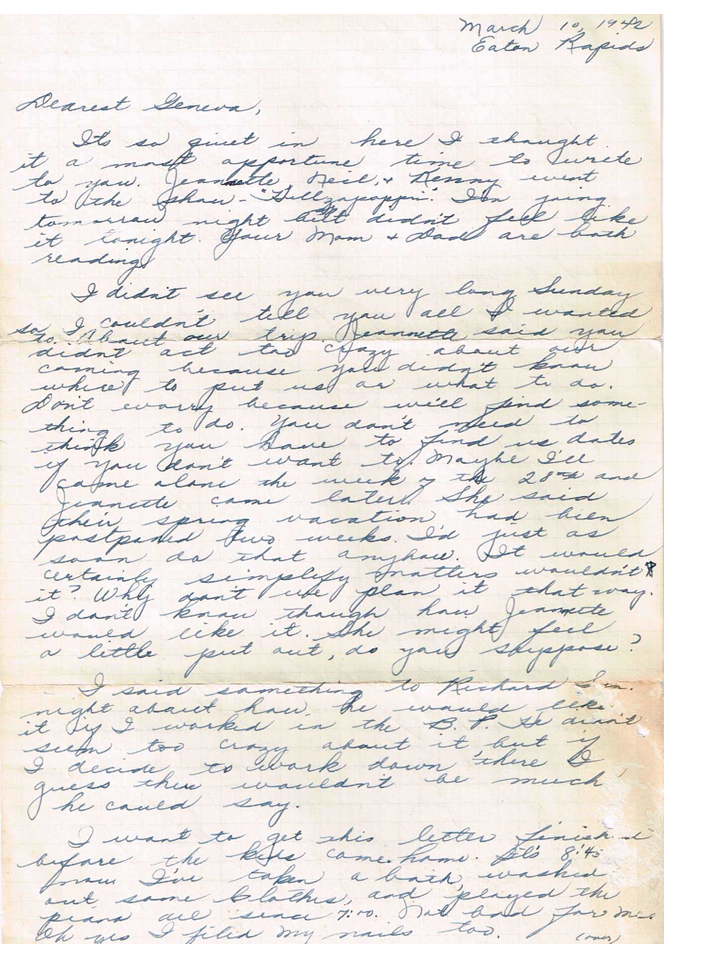 March 10, 1942
Eaton Rapids
Dearest Geneva,
It's so quiet in here I thought
it a most opportune time to write
to you. Jeannette, Neil, & Kenny went
to the show - "Hellzapoppin". I'm going
tomorrow night but didn't feel like
it tonight. Your Mom & Dad are both
reading.
I didn't see you very long Sunday
so I couldn't tell you all I wanted
to about our trip. Jeannette said you
didn't act too crazy about our
coming because you didn't know
where to put us or what to do.
Don't worry because we'll find some-
thing to do. You don't need to
think you have to find us dates
if you don't want to. Maybe I'll
come alone the week of the 28th and
Jeannette come later. She said
their spring vacation had been
postponed two weeks. I'd just as
soon do that anyhow. It would
certainly simplify matters wouldn't
it? Why don't we plan it that way.
I don't know though how Jeannette
would like it. She might feel
a little put out, do you suppose?
I said something to Richard Sun.
night about how he would like
it if I worked in the B. P. He didn't
seem too crazy about it, but if
I decide to work down there I
guess there wouldn't be much
he could say.
I want to get this letter finished
before the kids come home. It's 8:45
now. I've taken a bath, washed
out some clothes, and played the
piano all since 7:00. Not bad for me.
Oh yes I filed my nails too. (over)